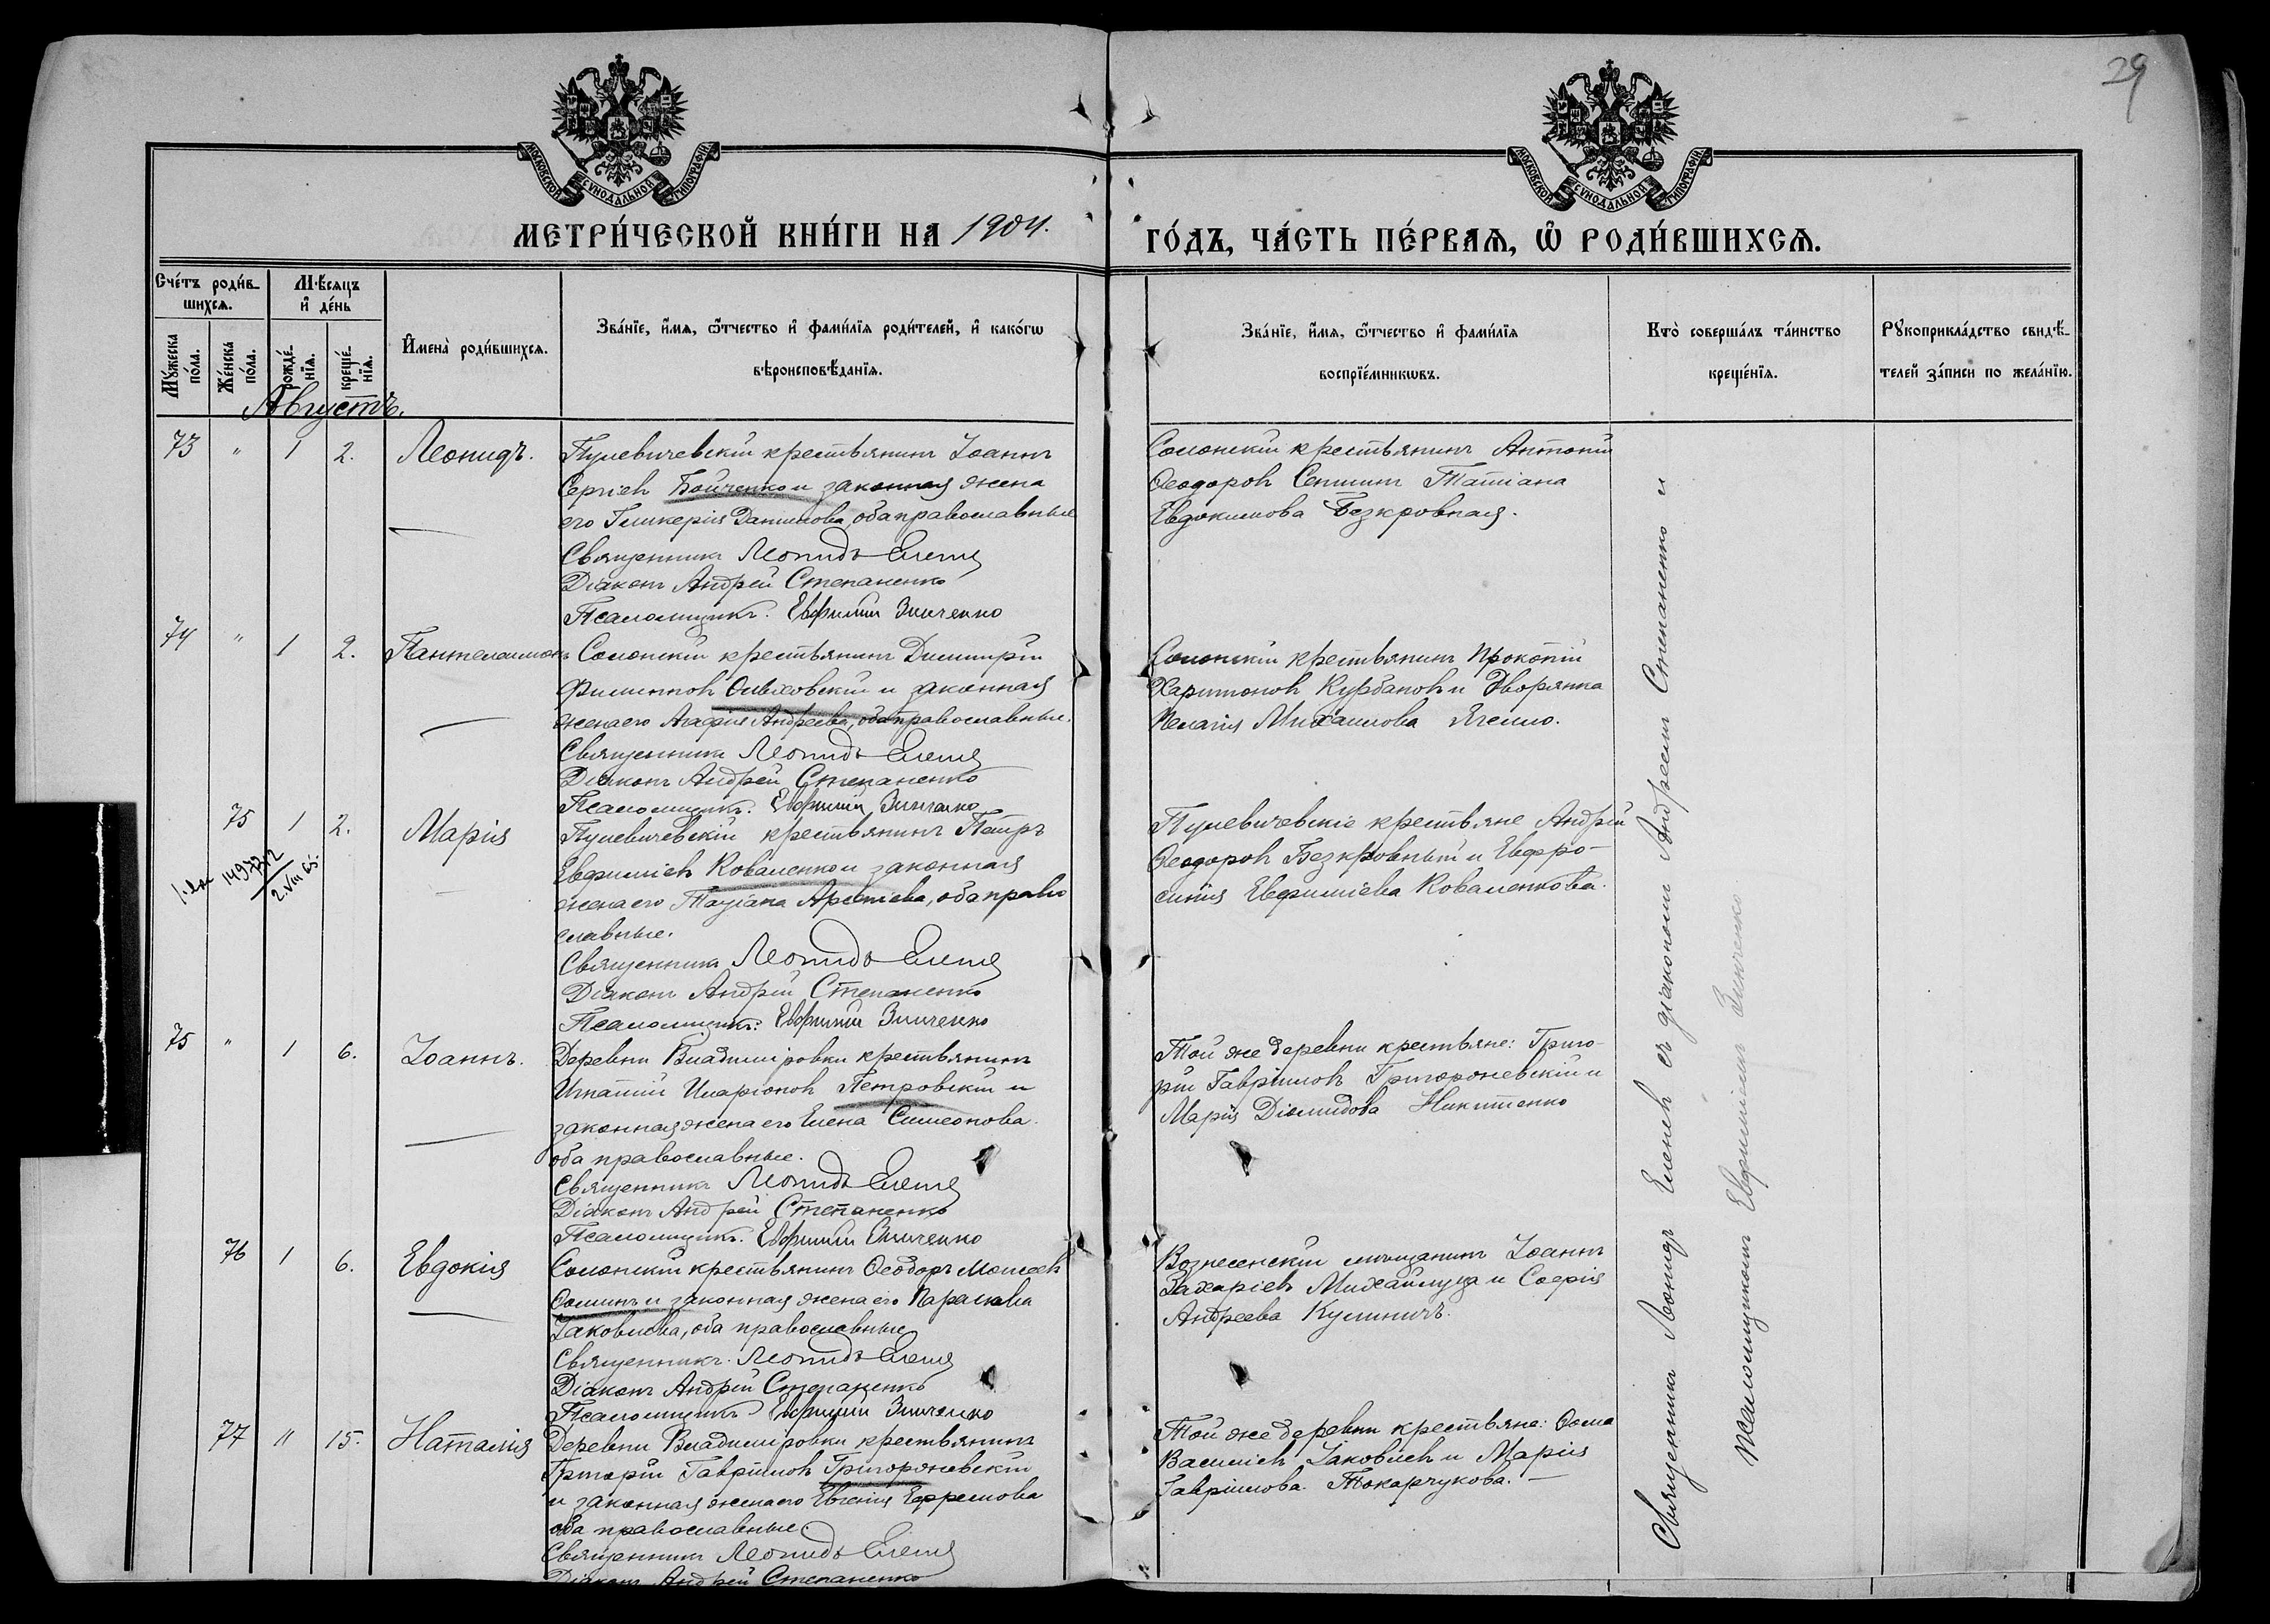 29
МОСКОВСКОЙ СѴНОДАЛЬНОЙ ТИПОГРАФІИ
МОСКОВСКОЙ СѴНОДАЛЬНОЙ ТИПОГРАФІИ
МЕТРИ́ЧЕСКОЙ КНИ́ГИ НА 1904.
ГО́ДЪ, ЧА́СТЬ ПЕ́РВАѦ, Ѽ РОДИ́ВШИХСѦ.
Счéтъ роди́в-
шихсѧ.
Мꙋ́жеска по́ла.
Же́нска по́ла.
Мѣ́сяцъ
и҆ де́нь
рожде́-нїѧ.
креще́-нїѧ.
И҆мена̀ роди́вшихсѧ.
Зва́нїе, и҆́мѧ, ѻ҆́тчество и҆ фами́лїѧ роди́телей, и҆ како́гѡ
вѣроисповѣ́данїѧ.
Зва́нїе, и҆́мѧ, ѻ҆́тчество и҆ фами́лїѧ
воспрїе́мникѡвъ.
Кто̀ соверша́лъ та́инство
креще́нїѧ.
Рꙋкоприкла́дство свидѣ́-
телей за́писи по жела́нїю.
Августъ.
73 " 1 2. Леонидъ.
Пулевичевскій крестьянинъ Іоаннъ
Сергіевъ Бойченко и законная жена
его Гликерія Данилова, оба православные
Священникъ Леонидъ
Діаконъ Андрей Степаненко
Псаломщикъ. Евфимій Зинченко
Солонскій крестьянинъ Антоній
Ѳеодоровъ Татіана
Евдокимова Безкровная.
74 " 1 2. Пантелеимонъ
Солонскій крестьянинъ Димитрій
Филипповъ Ольховскій и законная
жена его Агафія Андреева, оба православные.
Священникъ Леонидъ
Діаконъ Андрей Степаненко
Псаломщикъ. Евфимій Зинченко
Солонскій крестьянинъ Прокопій
Харитоновъ Курбановъ и Дворянка
Пелагія Михаилова
75 1 2. Марія
149732
2.VIII 65.
Пулевичевскій крестьянинъ Петръ
Евфиміевъ Коваленко и законная
жена его Татіана оба право
славные.
Священникъ Леонидъ
Діаконъ Андрей Степаненко
Псаломщикъ: Евфимій Зинченко
Пулевичевскіе крестьяне Андрей
Ѳеодоровъ Безкровный и Евфро-
синія Евфиміева Коваленкова.
75 " 1 6. Іоаннъ.
Деревни Владиміровки крестьянинъ
Игнатій Иларіоновъ Петровскій и
законная жена его Елена Симеонова.
оба православные.
Священникъ Леонидъ
Діаконъ Андрей Степаненко
Псаломщикъ. Евфимій Зинченко
Той же деревни крестьяне: Григо-
рій Гавріиловъ Григороневскій и
Марія Діомидова Никитенко
76 1 6. Евдокія
Солонскій крестьянинъ Ѳеодоръ Моисеевъ
Ѳоминъ и законная жена его Параскева
Іаковлева, оба православные
Священникъ. Леонидъ
Діаконъ Андрей Степаненко
Псаломщикъ Евфимій Зинченко
Вознесенскій мѣщанинъ Іоаннъ
Захаріевъ Михайлуца и Софія
Андреева Кулиничъ.
77 " 15. Наталія
Деревни Владиміровки крестьянинъ
Григорій Гавріиловъ Григороневскій
и законная жена его Евгенія Ефремова
оба православные.
Священникъ Леонидъ
Діаконъ Андрей Степаненко
Той же деревни крестьяне: Ѳома
Василіевъ Іаковлевъ и Марія
Гавріилова Токарчукова.
Священникъ Леонидъ съ діакономъ Андреемъ Степаненко и
Псаломщикомъ Евфиміемъ Зинченко